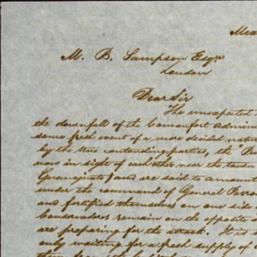 Mex
M. B. Sampson Esqre
London
Dear Sir
The unexpected
the downfall of the Comonfort Admini
some fresh event of a most decided natu
by the two contending parties, the
now in sight of each other near the town
Guanajuato) and are said to amount
under the command of General
and fortified themselves on one side
Conservadores remain on the opposite
are preparing for the attack. It is
only waiting for a fresh supply of